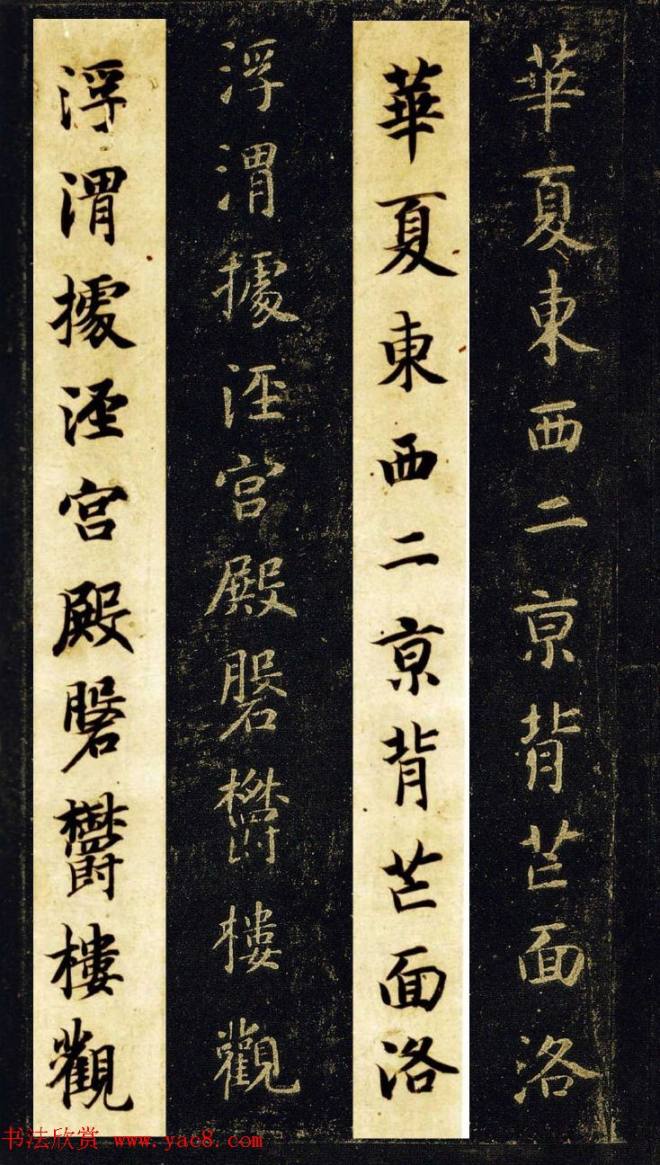 華夏東西二京背芒面洛
華夏東西二京背芒面洛
浮渭據涇宮殿磐鬱樓觀
浮渭據涇宮殿磐鬱樓觀
书法欣赏 www.yac8.com